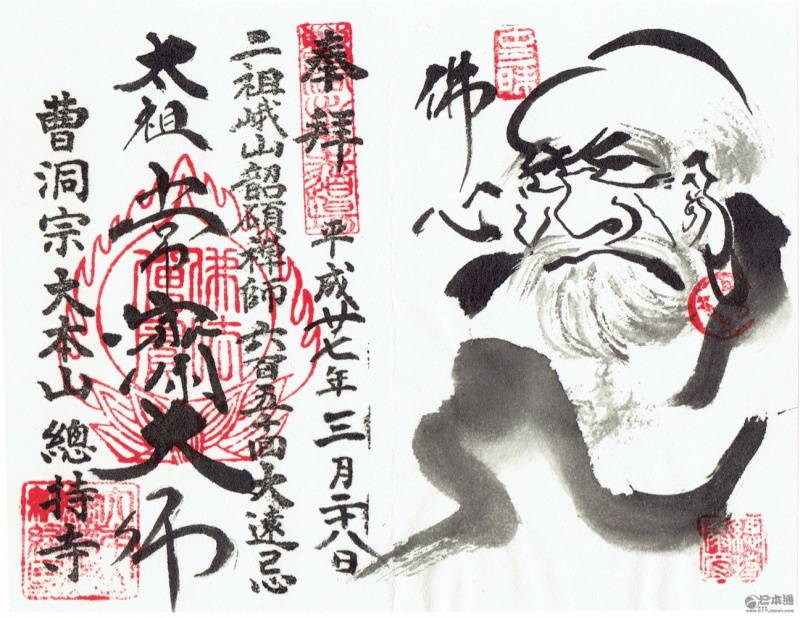 佛心
奉拜
平成廿七年三月二十八日
二祖峨山韶碩禪師 六百五十回大遠忌
太祖 常濟大師
曹洞宗大本山 總持寺
佛法僧寶
日本通